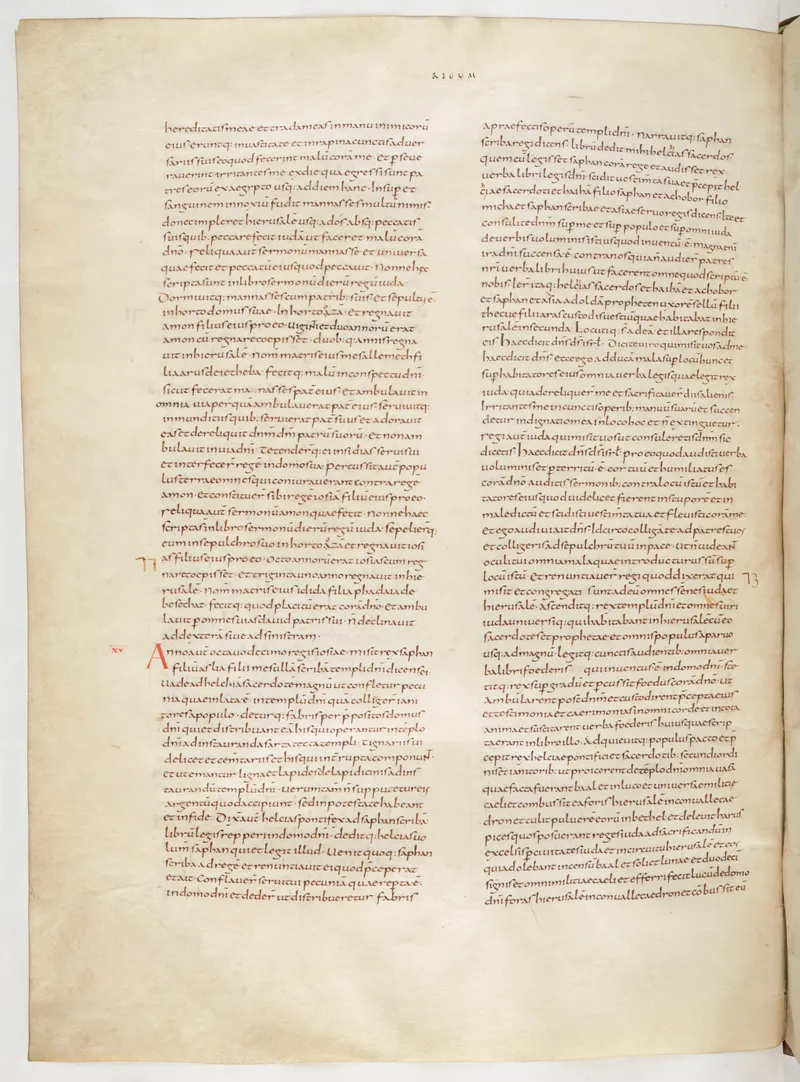 REGUM
hereditatis meae et tradam eas in manu inimicorū
eius eruntq; in uastitate et in rapina cunctis aduer
sariis suis eo quod fecerint malū corā me et pseue
rauerint irritantes me ex die qua egressi sunt pa
tres eorū ex aegypto usq; ad diem hanc. Insup et
sanguinem innoxiū fudit manasses multū nimis
donec impleret hierusalē usq; ad os absq; peccatis
suis quib; peccare fecit iudā ut faceret malū corā
dnō. reliqua aut sermonū manasse et uniuersa
quae fecit et peccatū eius quod peccauit. Nonne hec
scripta sunt in libro sermonū dierū regū iuda.
Dormiuitq; manasses cum patrib; suis et sepultus ē
in horto domus suae. In horto aza et regnauit
amon filius eius pro eo. uiginti et duo annorū erat
amon cū regnare coepisset. duob; q; annis regna
uit in hierusalē. nom matris eius mesallemeth fi
lia arus de ietheba. fecitq; malū in conspectu dni
sicut fecerat manasses pat eius et ambulauit in
omnia uia per quā ambulauerat pat eius. seruiuitq;
inmunditiis quib; seruierat pat suus et adorauit
eas et dereliquit dnm dm patrū suorū. et non am
bulauit in uia dni. Tetenderq; ei insidias serui sui
et interfecer regē in domo sua. percussit aut popu
lus terrae omnes qui coniurauerant contra regē
amon. et constituer sibi regē iosiā filiū eius pro eo.
reliqua aut sermonū amon quae fecit. nonne haec
scripta s in libro sermonū dierū regū iuda. sepelierq;
eum in sepulchro suo in horto aza et regnauit iosi
as filius eius pro eo. Octo annorū erat iosias cum reg
nare coepisset. et triginta uno anno regnauit in hie
rusalē. nom matris eius idida filia phadaia de
besechat. fecitq; quod placitū erat corā dnō. et ambu
lauit p omnes uias dauid patris sui. n̄ declinauit
ad dexterā siue ad sinistram.
xv
Anno aut octauo decimo regis iosiae. misit rex saphan
filiū aslia filii mesullā scribā templi dni dicens ei.
uade ad helchiā sacerdotē magnū ut confletur pecu
nia quae inlata ē in templū dni qua colliger iani
tores a populo. deturq; fabris per ppositos domus
dni qui et distribuant eā his qui operantur in tēplo
dni ad instauranda sartatecta templi. tignariis ui
delicet et cementariis et his qui interrupta componunt
et ut emantur ligna et lapides de lapidicinis ad ins
taurandū templū dni. uerum tam n̄ supputetur eis
argentū quod accipiunt. sed in potestate habeant
et in fide. Dixit aut helcias pontifex ad saphan scribā
librū legis repperi in domo dni. deditq; helcias uo
lum saphan qui et legit illud. Uenit quoq; saphan
scriba ad regē et renuntiauit ei quod pceperat
et ait. Conflauer serui tui pecuniā quae reperta ē
in domo dni et deder ut distribueretur fabris
a praefectis operū templi dni. narrauitq; saphan
scriba regi dicens. librū dedit mihi helcias sacerdos
quem cū legisset saphan corā rege et audisset rex
uerba libri legis dni. scidit uestimta sua et pcepit hel
ciae sacerdoti et haiha filio saphan et achobor filio
micha et saphan scribae et asiae seruo regis dicens. Ite et
consulite dnm sup me et sup populo et sup omni iuda
de uerbis uoluminis istius quod inuentū ē. magna eni
ira dni succensa ē contra nos quia n̄ audier patres
nri uerba libri huius ut facerent omne quod scriptū ē
nobis. Ier itaq; helcias sacerdos et haiha et achobor
et saphan et asia ad oldā propheten uxorē sellū filii
thecue filii araas custodis uestiū quae habitabat in hie
rusalē in secunda. Locutiq; s ad eā. et illa respondit
eis. Haec dicit dns ds isrl. Dicite uiro qui misit uos ad me.
haec dicit dns. ecce ego adducā mala sup locū hunc et
sup habitatores eius omnia uerba legis quae legit rex
iuda quia dereliquer me et sacrificauer diis alienis.
Irritantes me in cunctis operib; manuū suarū et succen
detur indignatio mea in loco hoc et n̄ extinguetur.
regi aut iuda qui misit uos ut consuleretis dnm sic
dicetis. Haec dicit dns ds isrl. pro eo quod audisti uerba
uoluminis et pterritū ē cor tuū et humiliatus es
corā dnō auditis sermonib; contra locū istū et habi
tatores eius quod uidelicet fierent in stuporē et in
maledictū et scidisti uestimta tua et fleuisti corā me.
et ego audiui ait dns. Idcirco colligā te ad patres tuos
et colligeris ad sepulchrū tuū in pace. ut n̄ uideant
oculi tui omnia mala quae introducturus sū sup
locū istū. Et renuntiauer regi quod dixerat qui
misit et congregati sunt ad eū omnes senes iuda et
hierusalē. Ascenditq; rex templū dni et omnes uiri
iuda uniuersiq; qui habitabant in hierusalē cū eo
sacerdotes et prophetae et omnis populus a paruo
usq; ad magnū. legitq; cunctis audientib; omnia uer
ba libri foederis qui inuentus ē in domo dni. ste
titq; rex sup gradū et pcussit foedus corā dnō. ut
ambularent post dnm et custodirent pcepta eius
et testimonia et caerimonias in omni corde et in tota
anima et suscitarent uerba foederis huius quae scrip
ta erant in libro illo. Adquieuitq; populus pacto et p
cepit rex helciae pontifici et sacerdotib; secundi ordi
nis et ianitorib; ut proicerent de tēplo dni omnia uasa
quae facta fuerant baal et in luco et uniuersae militie
caeli et combussit ea foris hierusalē in conualle ce
dron et tulit puluerē eorū in bethel et deleuit harus
pices quos posuerant reges iuda ad sacrificandum
excelsis p ciuitates iuda et in circuitu hierusalē et eos
qui adolebant incensū baal et soli et lunae et duodeci
signis et omni militiae caeli et efferri fecit lucū de domo
dni foras hierusalē in conualle cedron et cōbussit eū